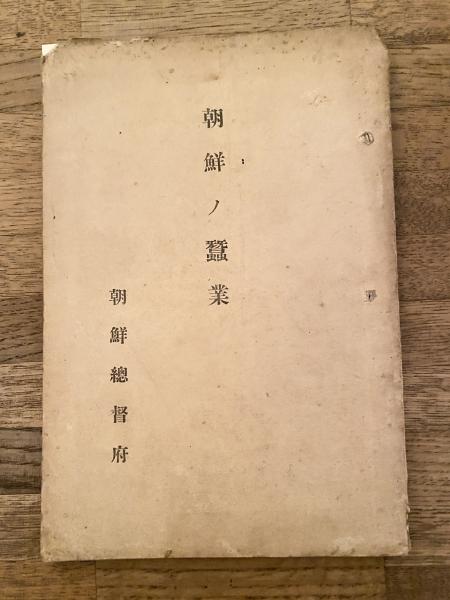 朝鮮ノ蠶業
朝鮮總督府